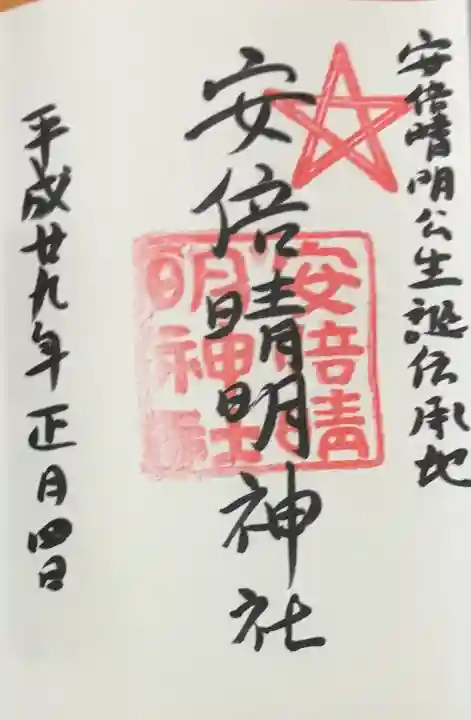 安倍晴明公生誕伝承地
安倍晴明神社
安倍晴
明神社
平成廿九年正月四日